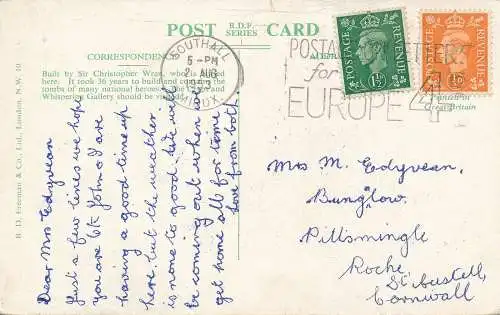 POST R.D.F. SERIES CARD
CORRESPONDEN
Built by Sir Christopher Wren, who is buried
here. It took 36 years to build and contains the
tombs of many national heroes. The
Whispering Gallery should be
SOUTHALL
5-PM
2 AUG
MIDDX.
POSTAGE REVENUE
1½D
POSTAGE REVENUE
POSTAL
for
EUROPE 4
Great Britain
H. D. Freeman & Co., Ltd., London, N.W. 10
Dear Mrs Edyvean
Just a few lines we hope
you are ok John & I are
having a good time up
here. but the weather
is none to good. We will
be coming out when we
get home all for time
love from both
Mrs M. Edyvean,
Bunglow,
Pillsmingle
Roche,
St Austell,
Cornwall